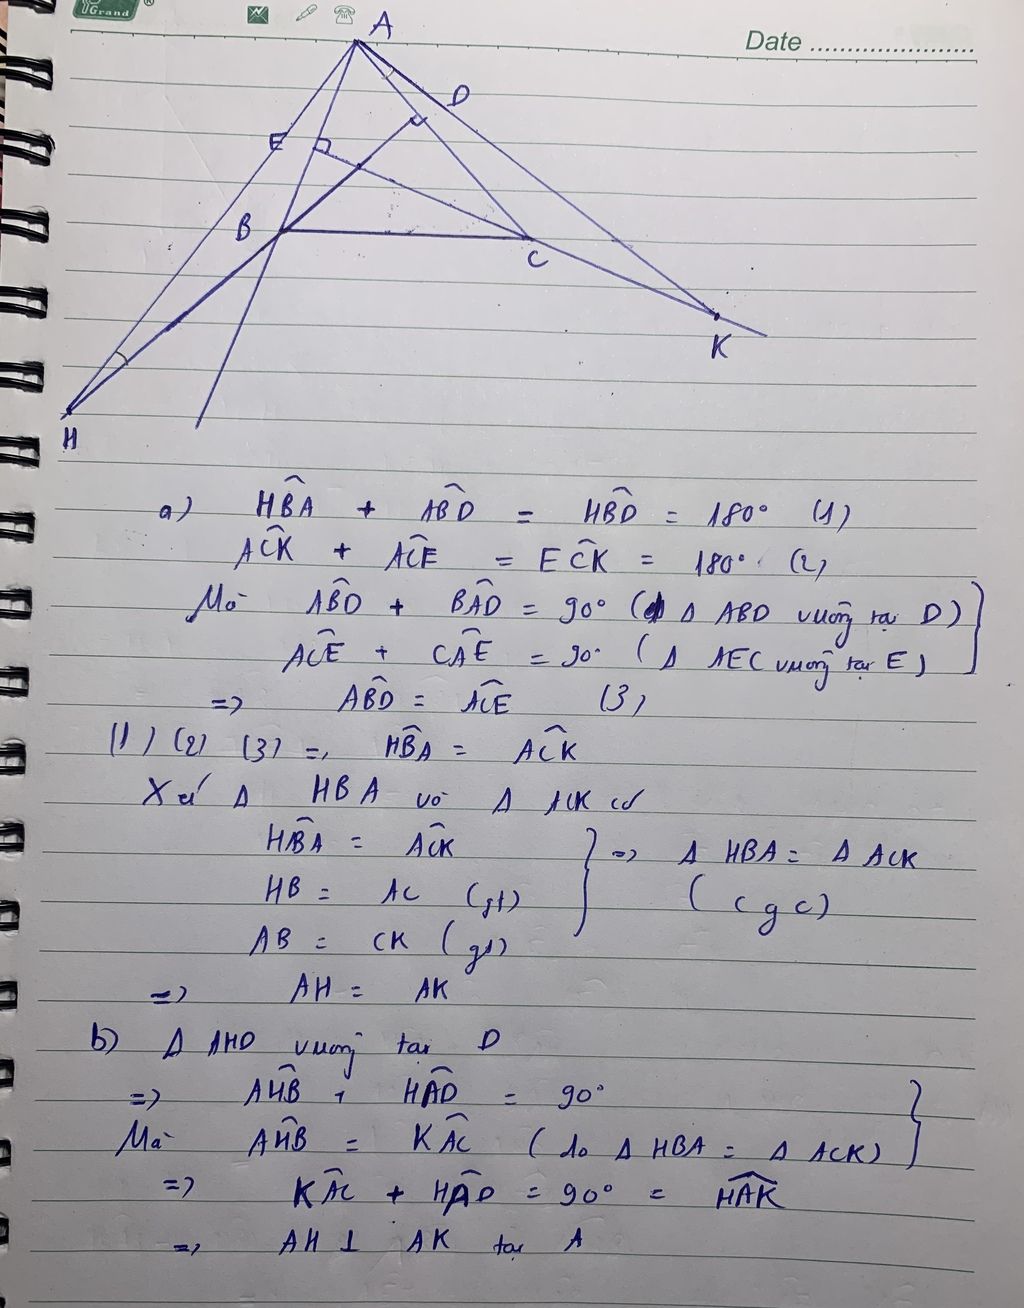 Grand
Date
A
D
E
B
C
K
H
a) HBA + ABD = HBD = 180° (1)
ACK + ACE = ECK = 180° (2)
Mà ABD + BAD = 90° (Δ ABD vuông tại D)
ACE + CAE = 90° (Δ AEC vuông tại E)
=> ABD = ACE (3)
(1) (2) (3) => HBA = ACK
Xét Δ HBA và Δ ACK có
HBA = ACK
=> Δ HBA = Δ ACK
HB = AC (gt)
(c g c)
AB = CK (gt)
=> AH = AK
b) Δ AHD vuông tại D
=> AHB + HAD = 90°
Mà AHB = KAC (do Δ HBA = Δ ACK)
=> KAC + HAD = 90° = HAK
=> AH ⊥ AK tại A